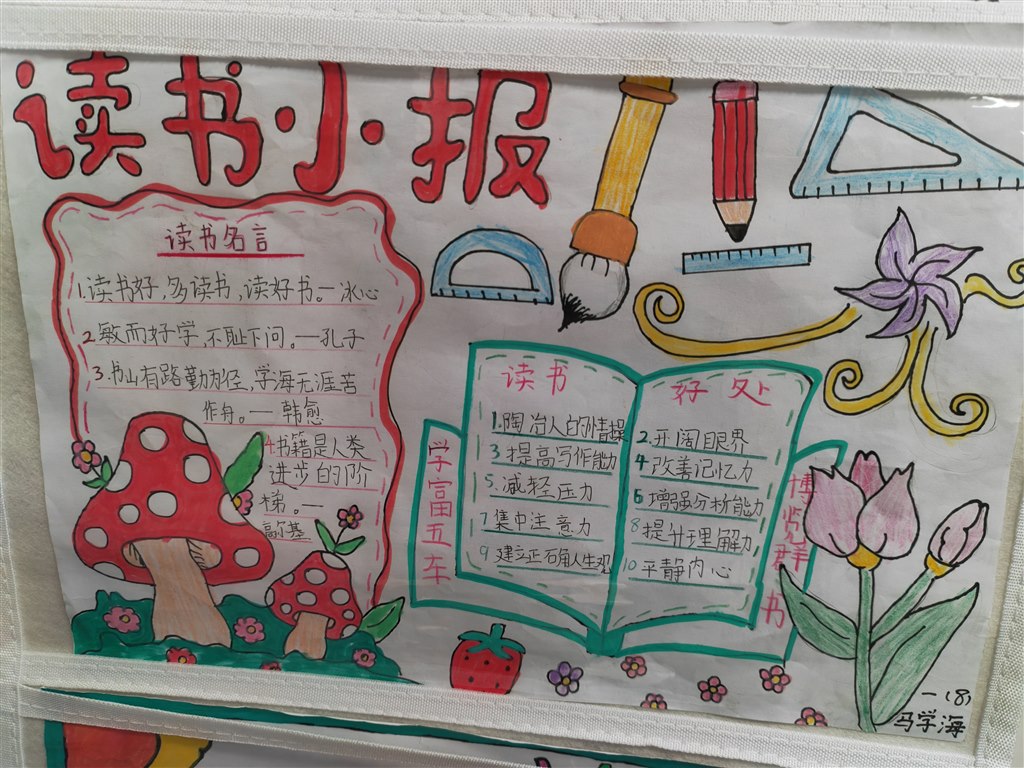 读书小报
读书名言
1.读书好,多读书,读好书。—冰心
2敏而好学,不耻下问。—孔子
3.书山有路勤为径,学海无涯苦
作舟。—韩愈
4.书籍是人类
进步的阶
梯。—
高尔基
学富五车
读书
1.陶冶人的情操
3提高写作能力
5.减轻压力
7集中注意力
9建立正确人生观
好处
2.开阔眼界
4改善记忆力
6增强分析能力
8提升理解力
10平静内心
博览群书
一(8)
马学海